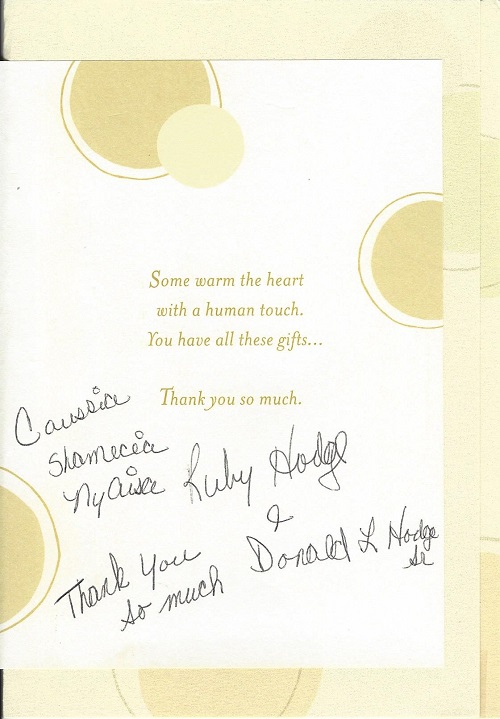 Some warm the heart
with a human touch.
You have all these gifts...
Thank you so much.
Shamecia
Nyaisa
Ruby Hodge
&
Donald L Hodge
Sr
Thank You
so much